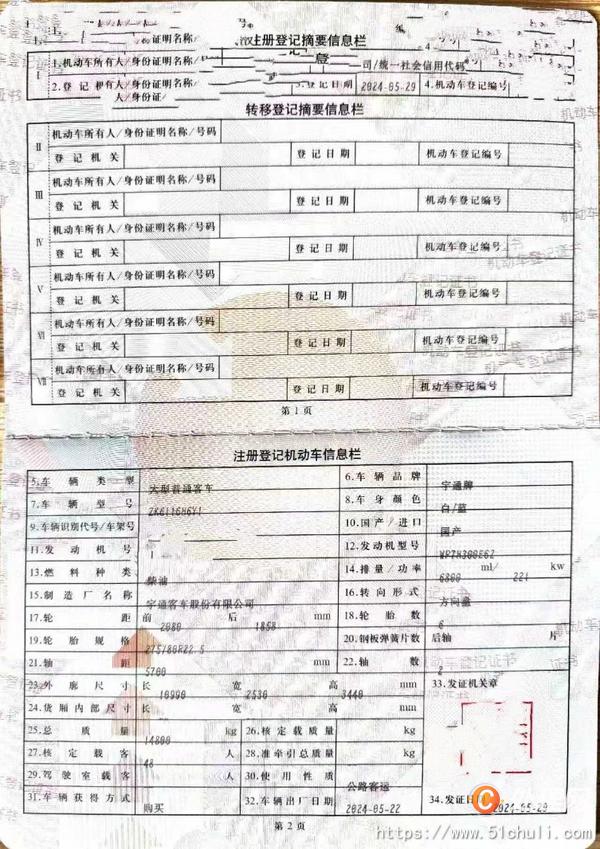 注册登记摘要信息栏
1.机动车所有人/身份证明名称 司/统一社会信用代码
2.登记机关 3.登记日期 2024-05-29 4.机动车登记编号
转移登记摘要信息栏
Ⅱ 机动车所有人/身份证明名称/号码
登记机关 登记日期 机动车登记编号
Ⅲ 机动车所有人/身份证明名称/号码
登记机关 登记日期 机动车登记编号
Ⅳ 机动车所有人/身份证明名称/号码
登记机关 登记日期 机动车登记编号
Ⅴ 机动车所有人/身份证明名称/号码
登记机关 登记日期 机动车登记编号
Ⅵ 机动车所有人/身份证明名称/号码
登记机关 登记日期 机动车登记编号
Ⅶ 机动车所有人/身份证明名称/号码
登记机关 登记日期 机动车登记编号
第1页
注册登记机动车信息栏
5.车辆类型 大型普通客车 6.车辆品牌 宇通牌
7.车辆型号 ZK6116H6Y1 8.车身颜色 白/蓝
9.车辆识别代号/车架号 10.国产/进口 国产
11.发动机号 12.发动机型号 WP7H300E62
13.燃料种类 柴油 14.排量/功率 6800 ml/ 221 kw
15.制造厂名称 宇通客车股份有限公司 16.转向形式 方向盘
17.轮距 前 2080 后 1858 mm 18.轮胎数 6
19.轮胎规格 275/80R22.5 20.钢板弹簧片数 后轴 片
21.轴距 5700 mm 22.轴数 2
23.外廓尺寸 长 10990 宽 2530 高 3440 mm 33.发证机关章
24.货厢内部尺寸 长 宽 高 mm
25.总质量 14800 kg 26.核定载质量 kg
27.核定载客 48 人 28.准牵引总质量 kg
29.驾驶室载客 人 30.使用性质 公路客运
31.车辆获得方式 购买 32.车辆出厂日期 2024-05-22 34.发证日期 2024-05-29
第2页
https://www.51chuli.com